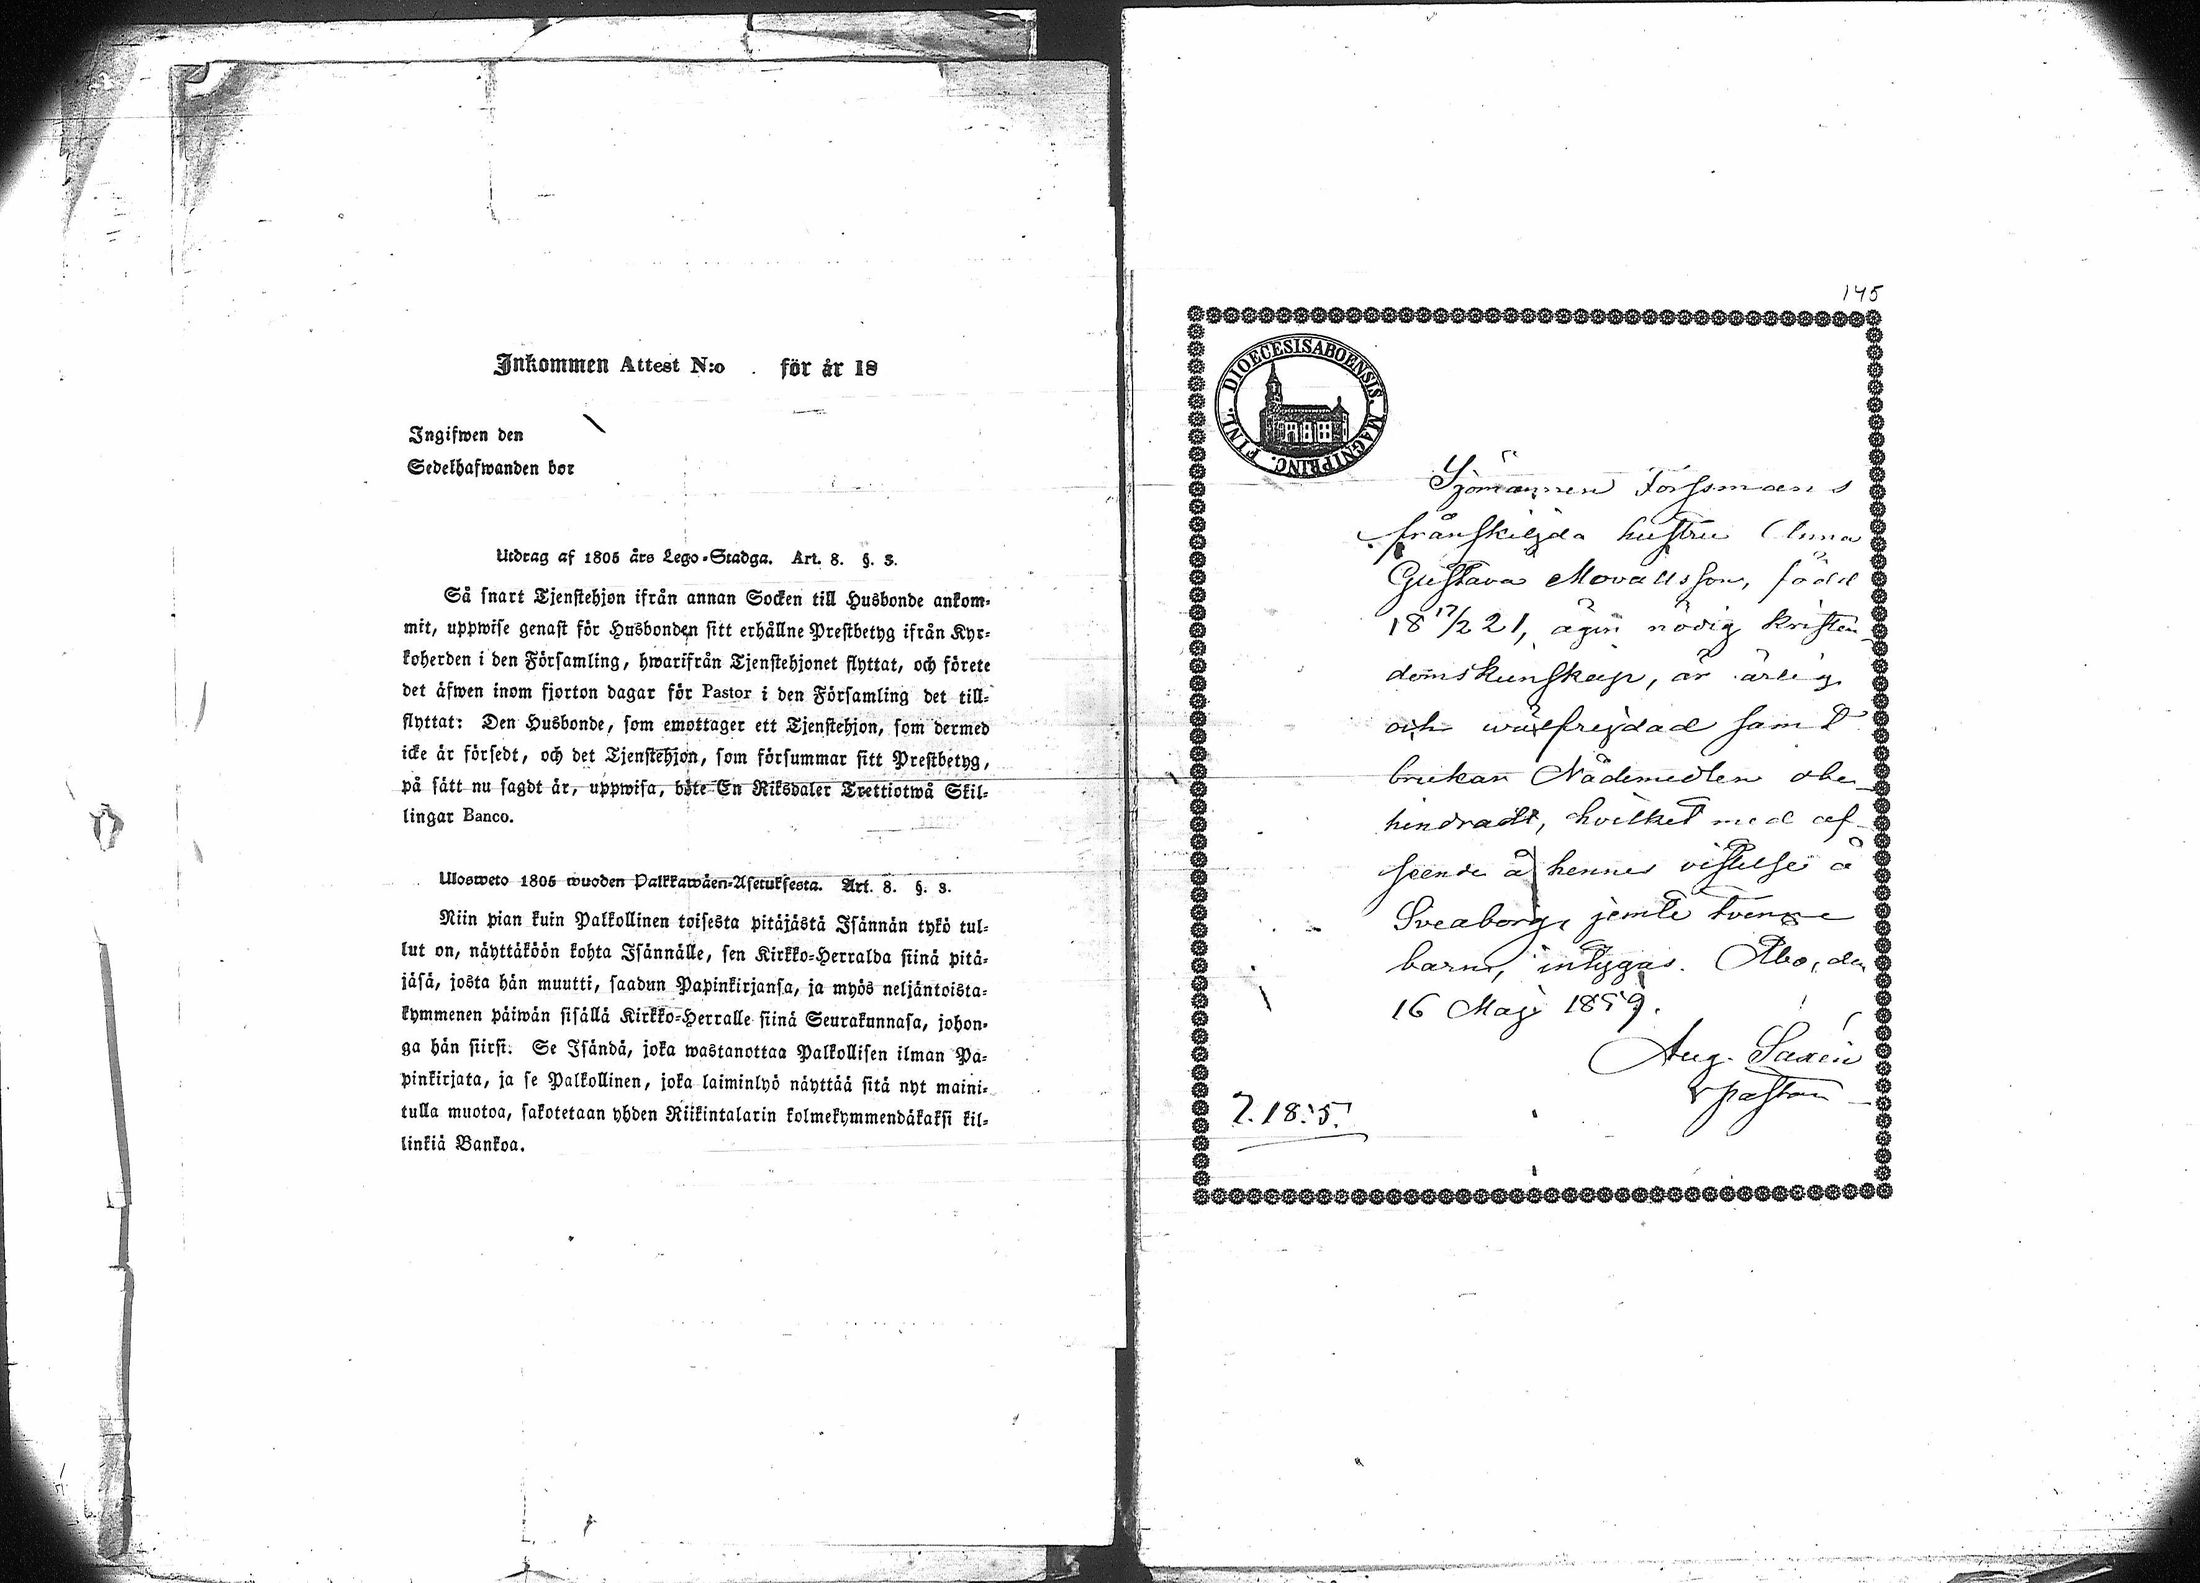 Inkommen Attest N:o . för år 18
Ingifwen den
Sedelhafwanden bor
Utdrag af 1805 års Lego-Stadga. Art. 8. §. 3.
Så snart Tjenstehjon ifrån annan Socken till Husbonde ankom-
mit, uppwise genast för Husbonden sitt erhållne Prestbetyg ifrån Kyr-
koherden i den Församling, hwarifrån Tjenstehjonet flyttat, och förete
det äfwen inom fjorton dagar för Pastor i den Församling det till-
flyttat: Den Husbonde, som emottager ett Tjenstehjon, som dermed
icke är försedt, och det Tjenstehjon, som försummar sitt Prestbetyg,
på sätt nu sagdt är, uppwisa, böte En Riksdaler Trettiotwå Skil-
lingar Banco.
Ulosweto 1805 wuoden Palkkawäen-Asetuksesta. Art. 8. §. 3.
Niin pian kuin Palkollinen toisesta pitäjästä Isännän tykö tul-
lut on, näyttäköön kohta Isännälle, sen Kirkko-Herralda siinä pitä-
jäsä, josta hän muutti, saadun Papinkirjansa, ja myös neljäntoista-
kymmenen päiwän sisällä Kirkko-Herralle siinä Seurakunnasa, johon-
ga hän siirsi. Se Isändä, joka wastanottaa Palkollisen ilman Pa-
pinkirjata, ja se Palkollinen, joka laiminlyö näyttää sitä nyt maini-
tulla muotoa, sakotetaan yhden Riikintalarin kolmekymmendäkaksi kil-
linkiä Bankoa.
145
DIOECESISABOENSIS. MAGNIPRINC. FINL.
Sjömannen Forssmans
frånskiljda hustru Anna
Gustava Movallsson, född
18 17/2 21, äger nödig kristen-
domskunskap, är ärlig
och wälfrejdad samt
brukar Nådemedlen obe-
hindradt, hvilket med af-
seende å hennes vistelse å
Sveaborg, jemte tvenne
barn, intygas. Åbo, den
16 Maji 1859.
Aug. Saxén
v pastor
7.18.5.